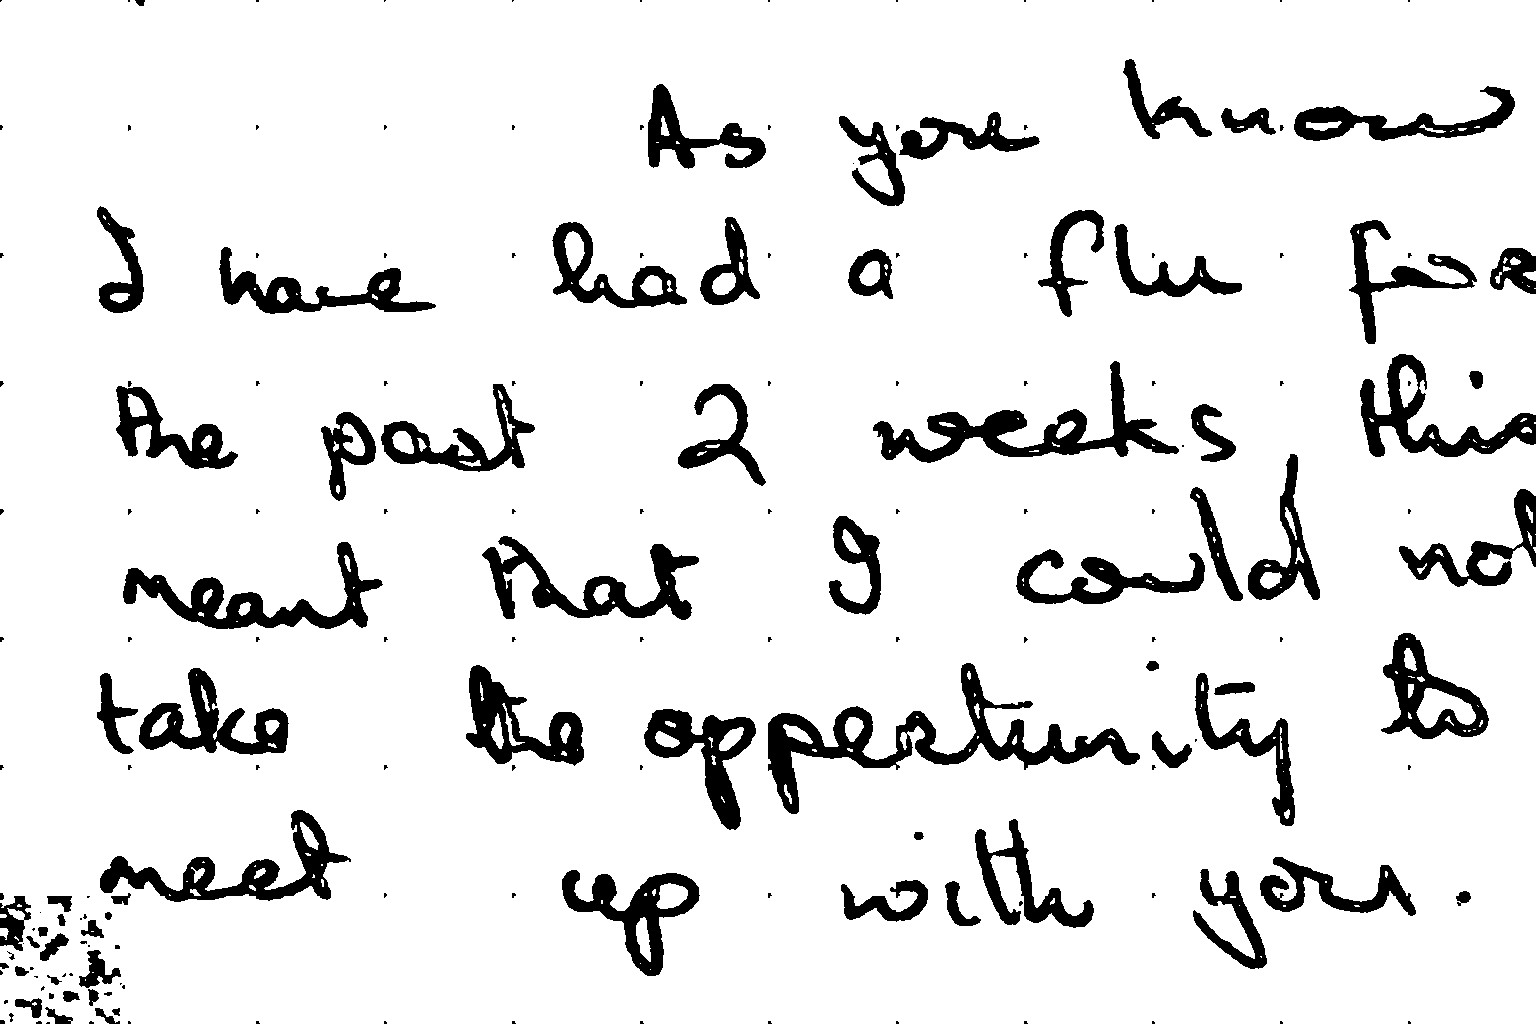 As you know
I have had a flu for
the past 2 weeks this
meant that I could not
take the oppertunity to
meet up with you.